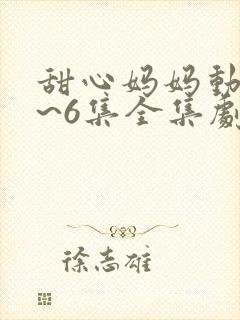 甜心妈妈動
~6集全集劇
徐志雄